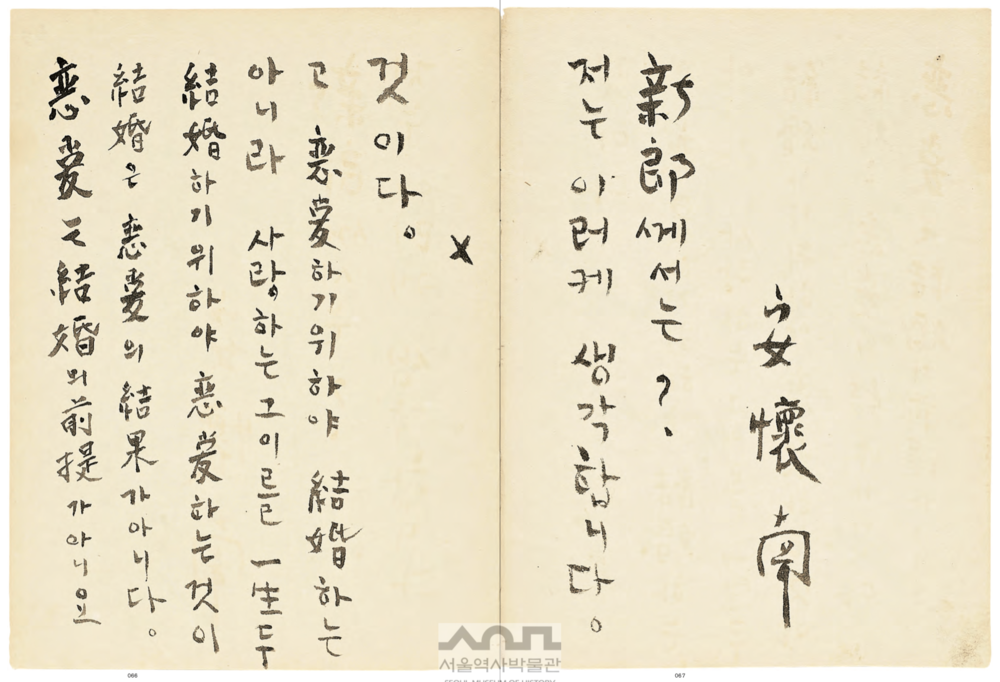 恋愛는 結婚의 前提가아니요
結婚은 恋愛의 結果가아니다。
結婚하기위하야 恋愛하는것이
아니라 사랑하는그이를 一生두
고 恋愛하기위하야 結婚하는
것이다。
×
저는 이러케 생각합니다。
新郎ᄭᅦ서는?
安懷南
서울역사박물관
SEOUL MUSEUM OF HISTORY
066
067